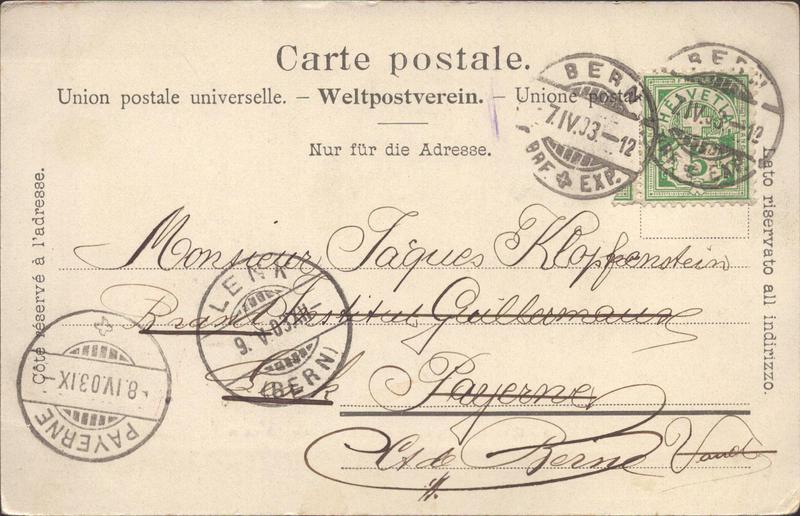 Carte postale.
Union postale universelle. – Weltpostverein. – Unione posta
Nur für die Adresse.
Côté réservé à l'adresse.
lato riservato all indirizzo.
BERN
7.IV.03.–12
BRF. EXP.
BERN
7.IV.03.–12
BRF. EXP.
HELVETIA
5
Monsieur Jâques Klopfenstein
Institut Guillermaux
Lenk Payerne
Ct de Berne Vaud
LENK
9.IV.03.VII–
(BERN)
–8.IV.03.IX
PAYERNE